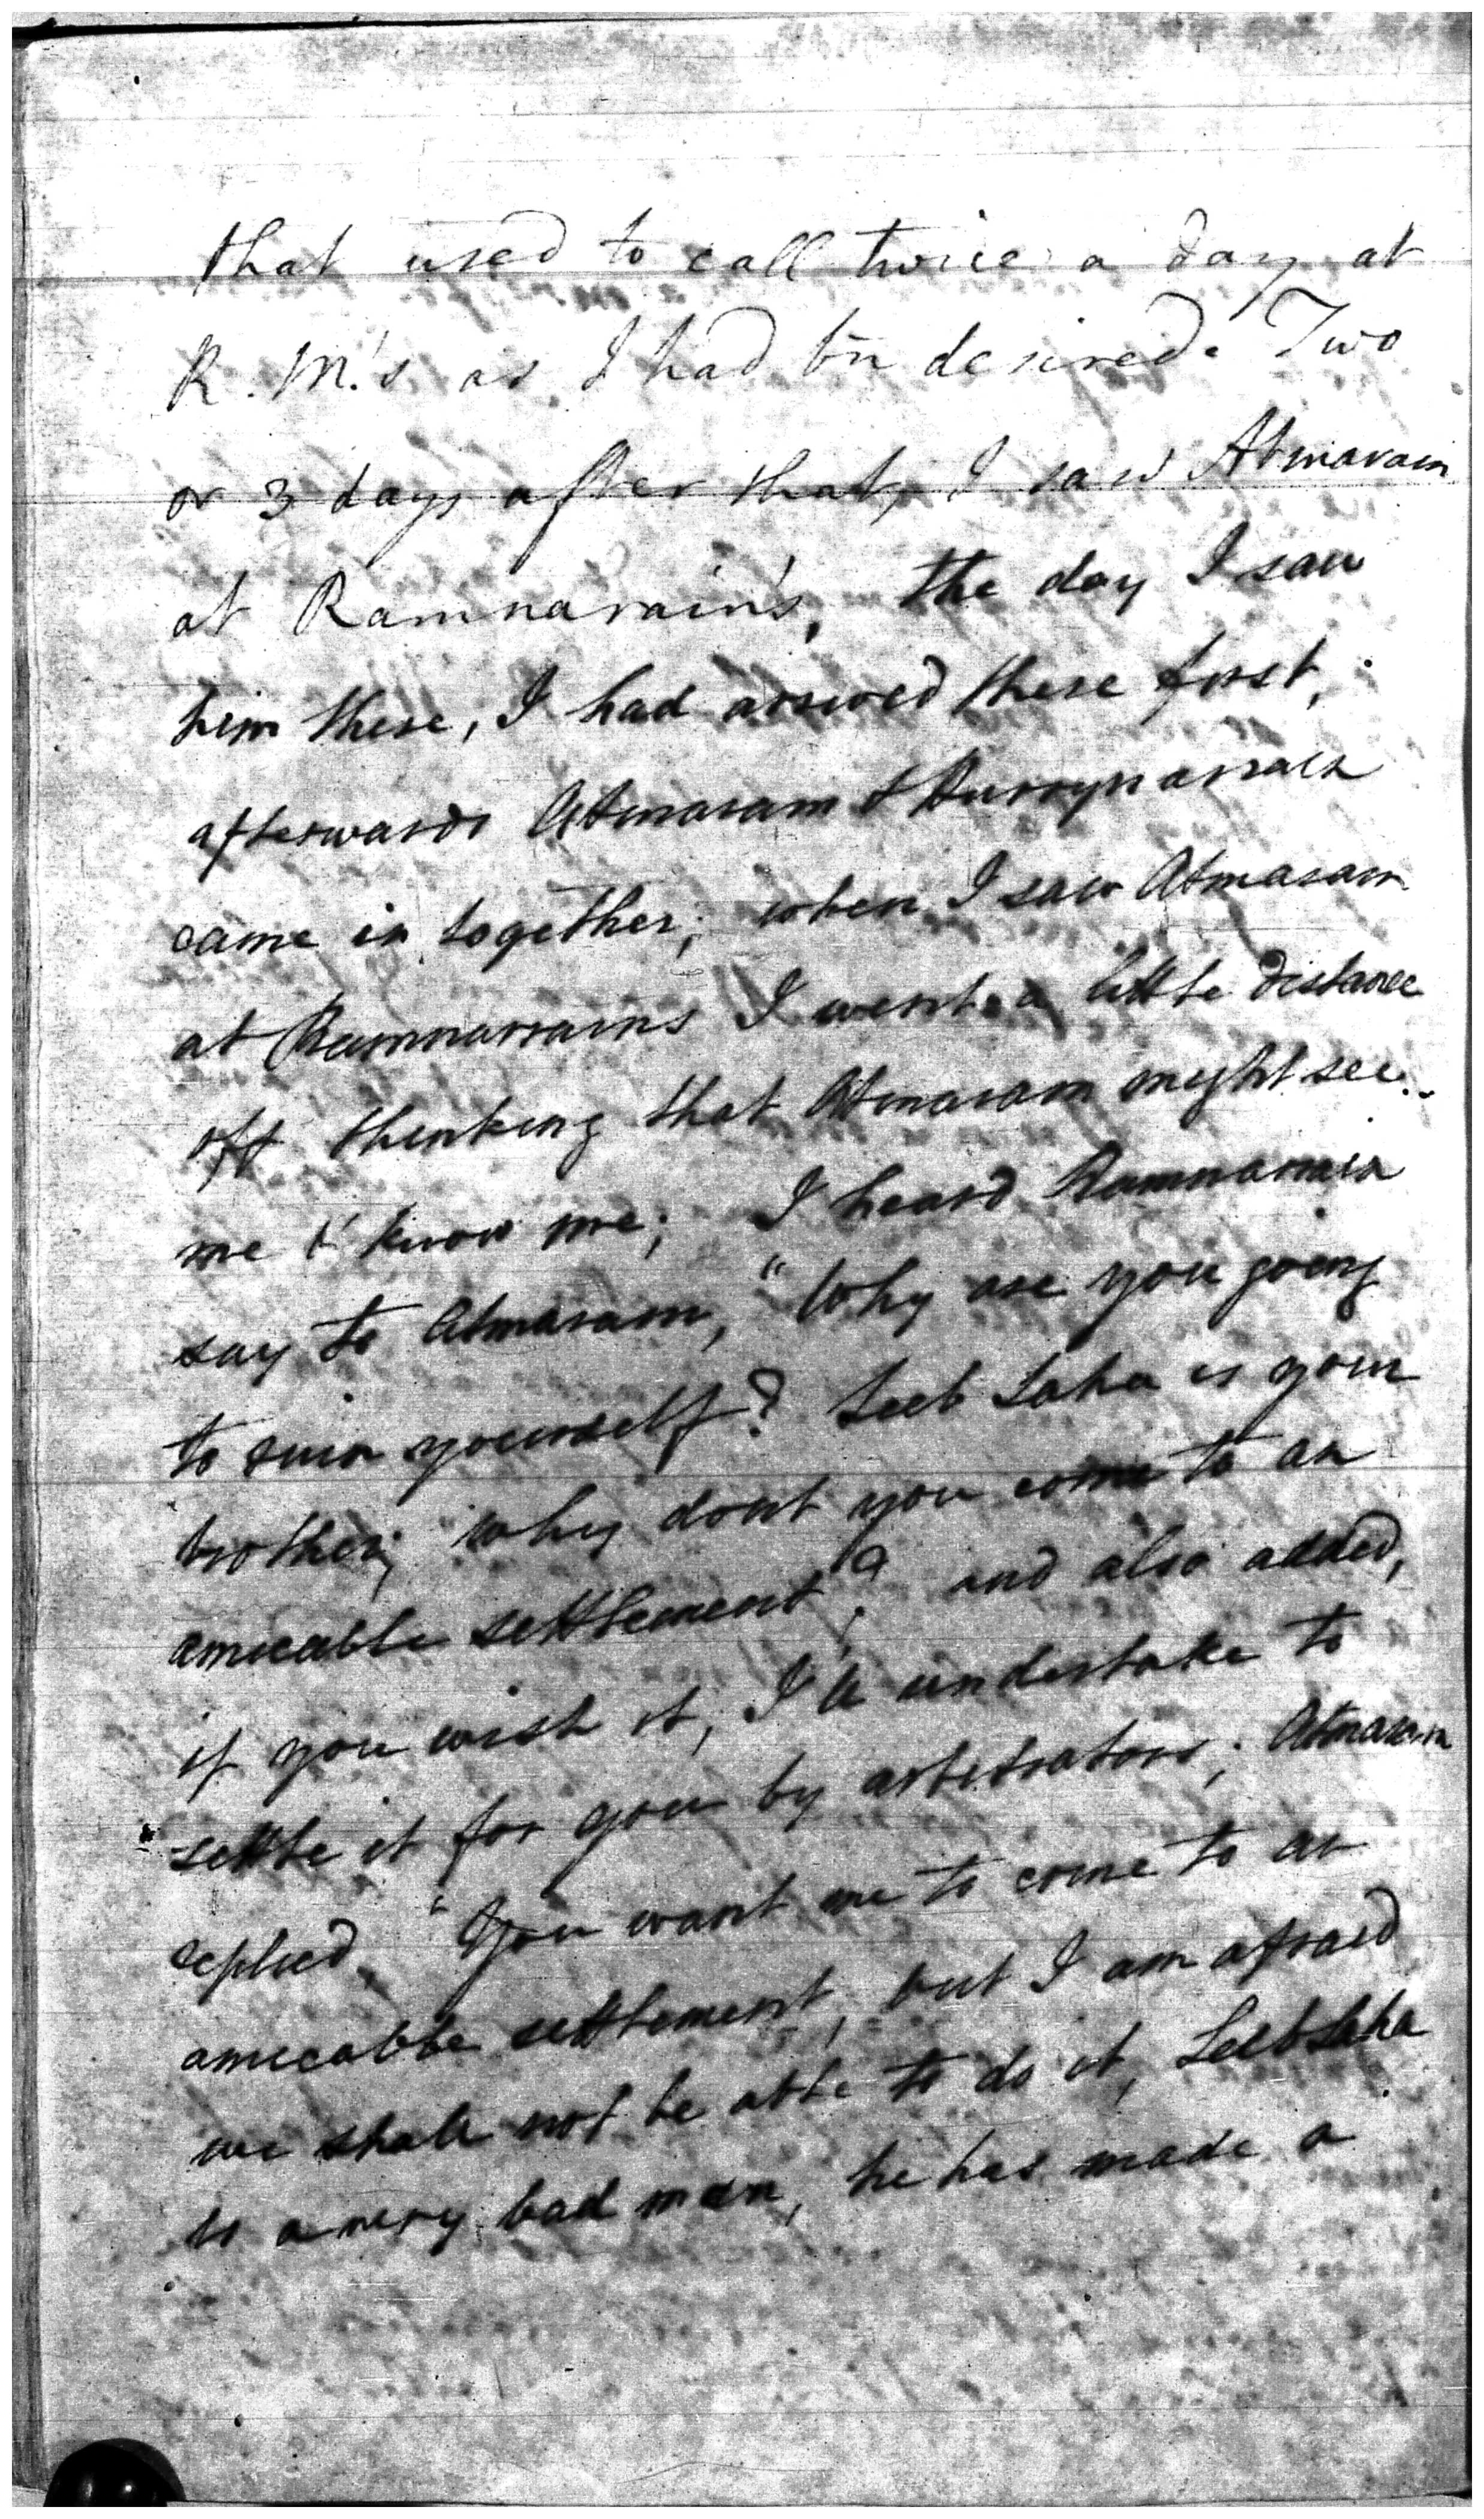 that used to call twice a day at
R. M.'s as I had bn desired. Two
or 3 days after that, I saw Atmaram
at Ramnarain's, the day I saw
him there, I had arrived there first,
afterwards Atmaram & Hurrynarrain
came in together; when I saw Atmaram
at Ramnarrains I went a little distance
off thinking that Atmaram might see
me & know me; I heard Ramnarrain
say to Atmaram, "Why are you going
to ruin yourself? Seeb Saha is your
brother; why dont you come to an
amicable settlement? and also added,
if you wish it, I'll undertake to
settle it for you by arbitrators; Atmaram
replied, "You want me to come to an
amicable settlement, but I am afraid
we shall not be able to do it, Seeb Saha
is a very bad man, he has made a